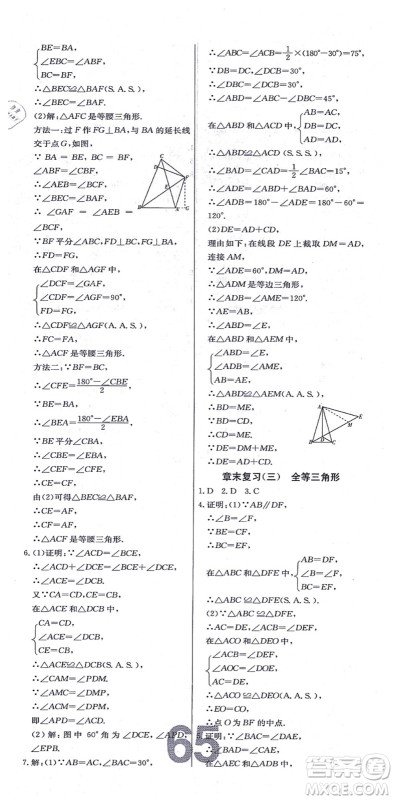 BE=BA,
∠EBC=∠ABF,
BC=BF,
∴△BEC≌△BAF(S.A.S.).
∴∠BEC=∠BAF.
(2)解:△AFC是等腰三角形.
方法一:过F作FG⊥BA,与BA的延长线
交于点G,如图,
∵BA=BE,BC=BF,
∠ABF=∠CBF,
∴∠AEB=∠BCF.
∵∠BEC=∠BAF,
∴∠GAF=∠AEB=
∠BCF.
∵BF平分∠ABC,FD⊥BC,FG⊥BA,
∴FD=FG.
在△CDF和△AGF中,
∠DCF=∠GAF,
∠CDF=∠AGF=90°,
FD=FG,
∴△CDF≌△AGF(A.A.S.).
∴FC=FA.
∴△ACF是等腰三角形.
方法二:∵BF=BC,
∴∠CFE=180°-∠CBE/2.
∵BE=BA,
∴∠BEA=180°-∠EBA/2.
∵BF平分∠CBA,
∴∠CBE=∠EBA.
∴∠CFE=∠BEA=∠CEF.
∴CE=CF.
由(2)可得△BEC≌△BAF,
∴CE=AF.
∴CF=AF.
∴△ACF是等腰三角形.
6.(1)证明:∵∠ACD=∠BCE,
∴∠ACD+∠DCE=∠BCE+∠DCE.
∴∠ACE=∠BCD.
又∵CA=CD,CE=CB,
在△ACE和△DCB中,
CA=CD,
∠ACE=∠DCB,
CE=CB,
∴△ACE≌△DCB(S.A.S.).
∴∠CAM=∠PDM.
∵∠AMC=∠DMP,
∴∠APD=∠ACD.
即∠APD=∠ACD.
(2)解:图中60°角为∠DCE,∠APD,
∠EPB.
7.解:(1)∵AB=AC,∠BAC=30°,
∴∠ABC=∠ACB=1/2×(180°-30°)=75°.
∵DB=DC,∠DCB=30°,
∴∠DBC=∠DCB=30°.
∴∠ABD=∠ABC-∠DBC=45°.
在△ABD和△ACD中,
AB=AC,
DB=DC,
AD=AD,
∴△ABD≌△ACD(S.S.S.).
∴∠BAD=∠CAD=1/2∠BAC=15°.
∴∠ADB=180°-∠ABD-∠BAD=180°-45°-15°=
120°.
(2)DE=AD+CD.
理由如下:在线段DE上截取DM=AD,
连接AM,
∵∠ADE=60°,DM=AD,
∴△ADM是等边三角形.
∴∠ADB=∠AME=120°.
∵AE=AB,
∴∠ABD=∠E.
在△ABD和△AEM中,
∠ABD=∠E,
∠ADB=∠AME,
AB=AE,
∴△ABD≌△AEM(A.A.S.).
∴BD=ME.
∵BD=CD,
∴CD=ME.
∵DE=DM+ME,
∴DE=AD+CD.
章末复习(三) 全等三角形
1.D 2.D 3.C
4.证明:(1)∵AB∥DF,
∴∠B=∠F.
∵BE=CF,
∴BC=EF.
在△ABC和△DFE中,
AB=DF,
∠B=∠F,
BC=EF,
∴△ABC≌△DFE(S.A.S.).
(2)∵△ABC≌△DFE,
∴AC=DE,∠ACB=∠DEF.
在△ACO和△DEO中,
∠ACO=∠DEO,
∠AOC=∠DOE,
AC=DE,
∴△ACO≌△DEO(A.A.S.).
∴EO=CO.
∴点O为BF的中点.
5.证明:(1)∵AD⊥BC,
65